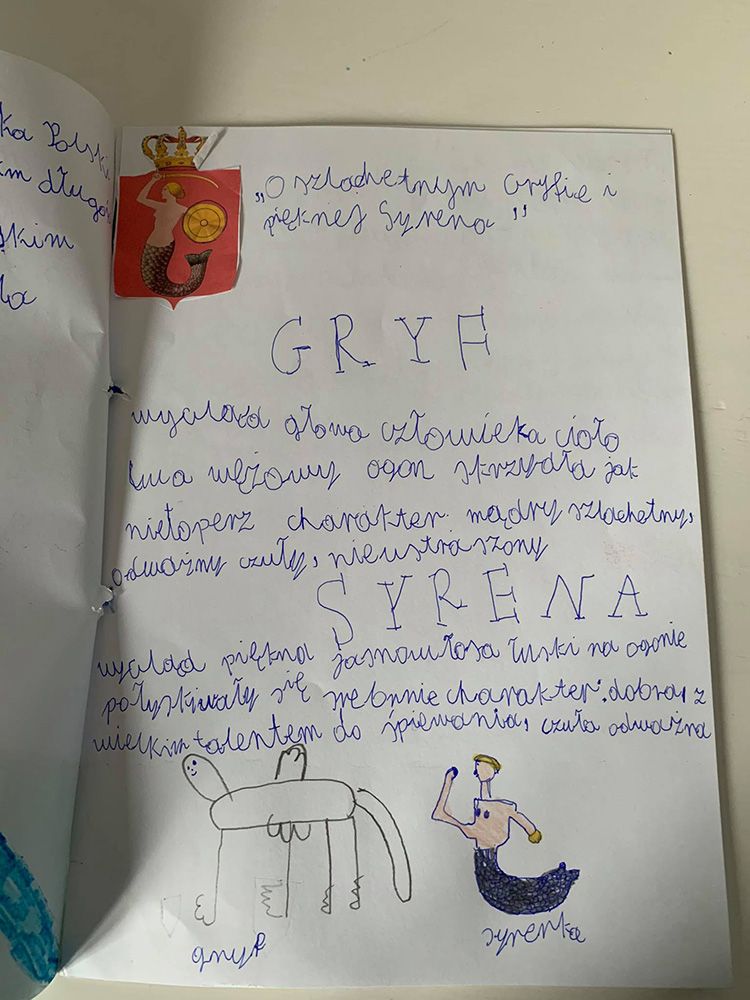 ka Polski
im długo
skim
ła
„O szlachetnym Gryfie i
pięknej Syrena”
GRYF
wygląd głowa człowieka cioło
lwa wężowy ogon skrzydła jak
nietoperz charakter mądry szlachetny,
odważny czuły, nieustraszony
SYRENA
wygląd piękna jasnowłosa łuski na ogonie
połyskiwały się srebnnie charakter: dobra, z
wielkim talentem do śpiewania, czuła odważna
gryf
syrenka